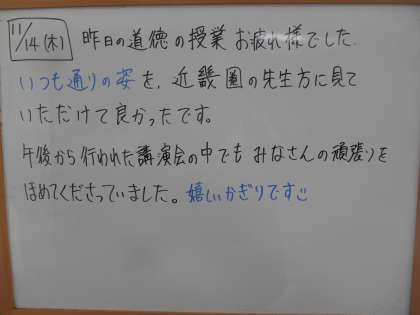 11/14(木) 昨日の道徳の授業 お疲れ様でした.
いつも通りの姿を、近畿圏の先生方に見て
いただけて良かったです。
午後から行われた講演会の中でも みなさんの頑張りを
ほめてくださっていました。嬉しいかぎりです